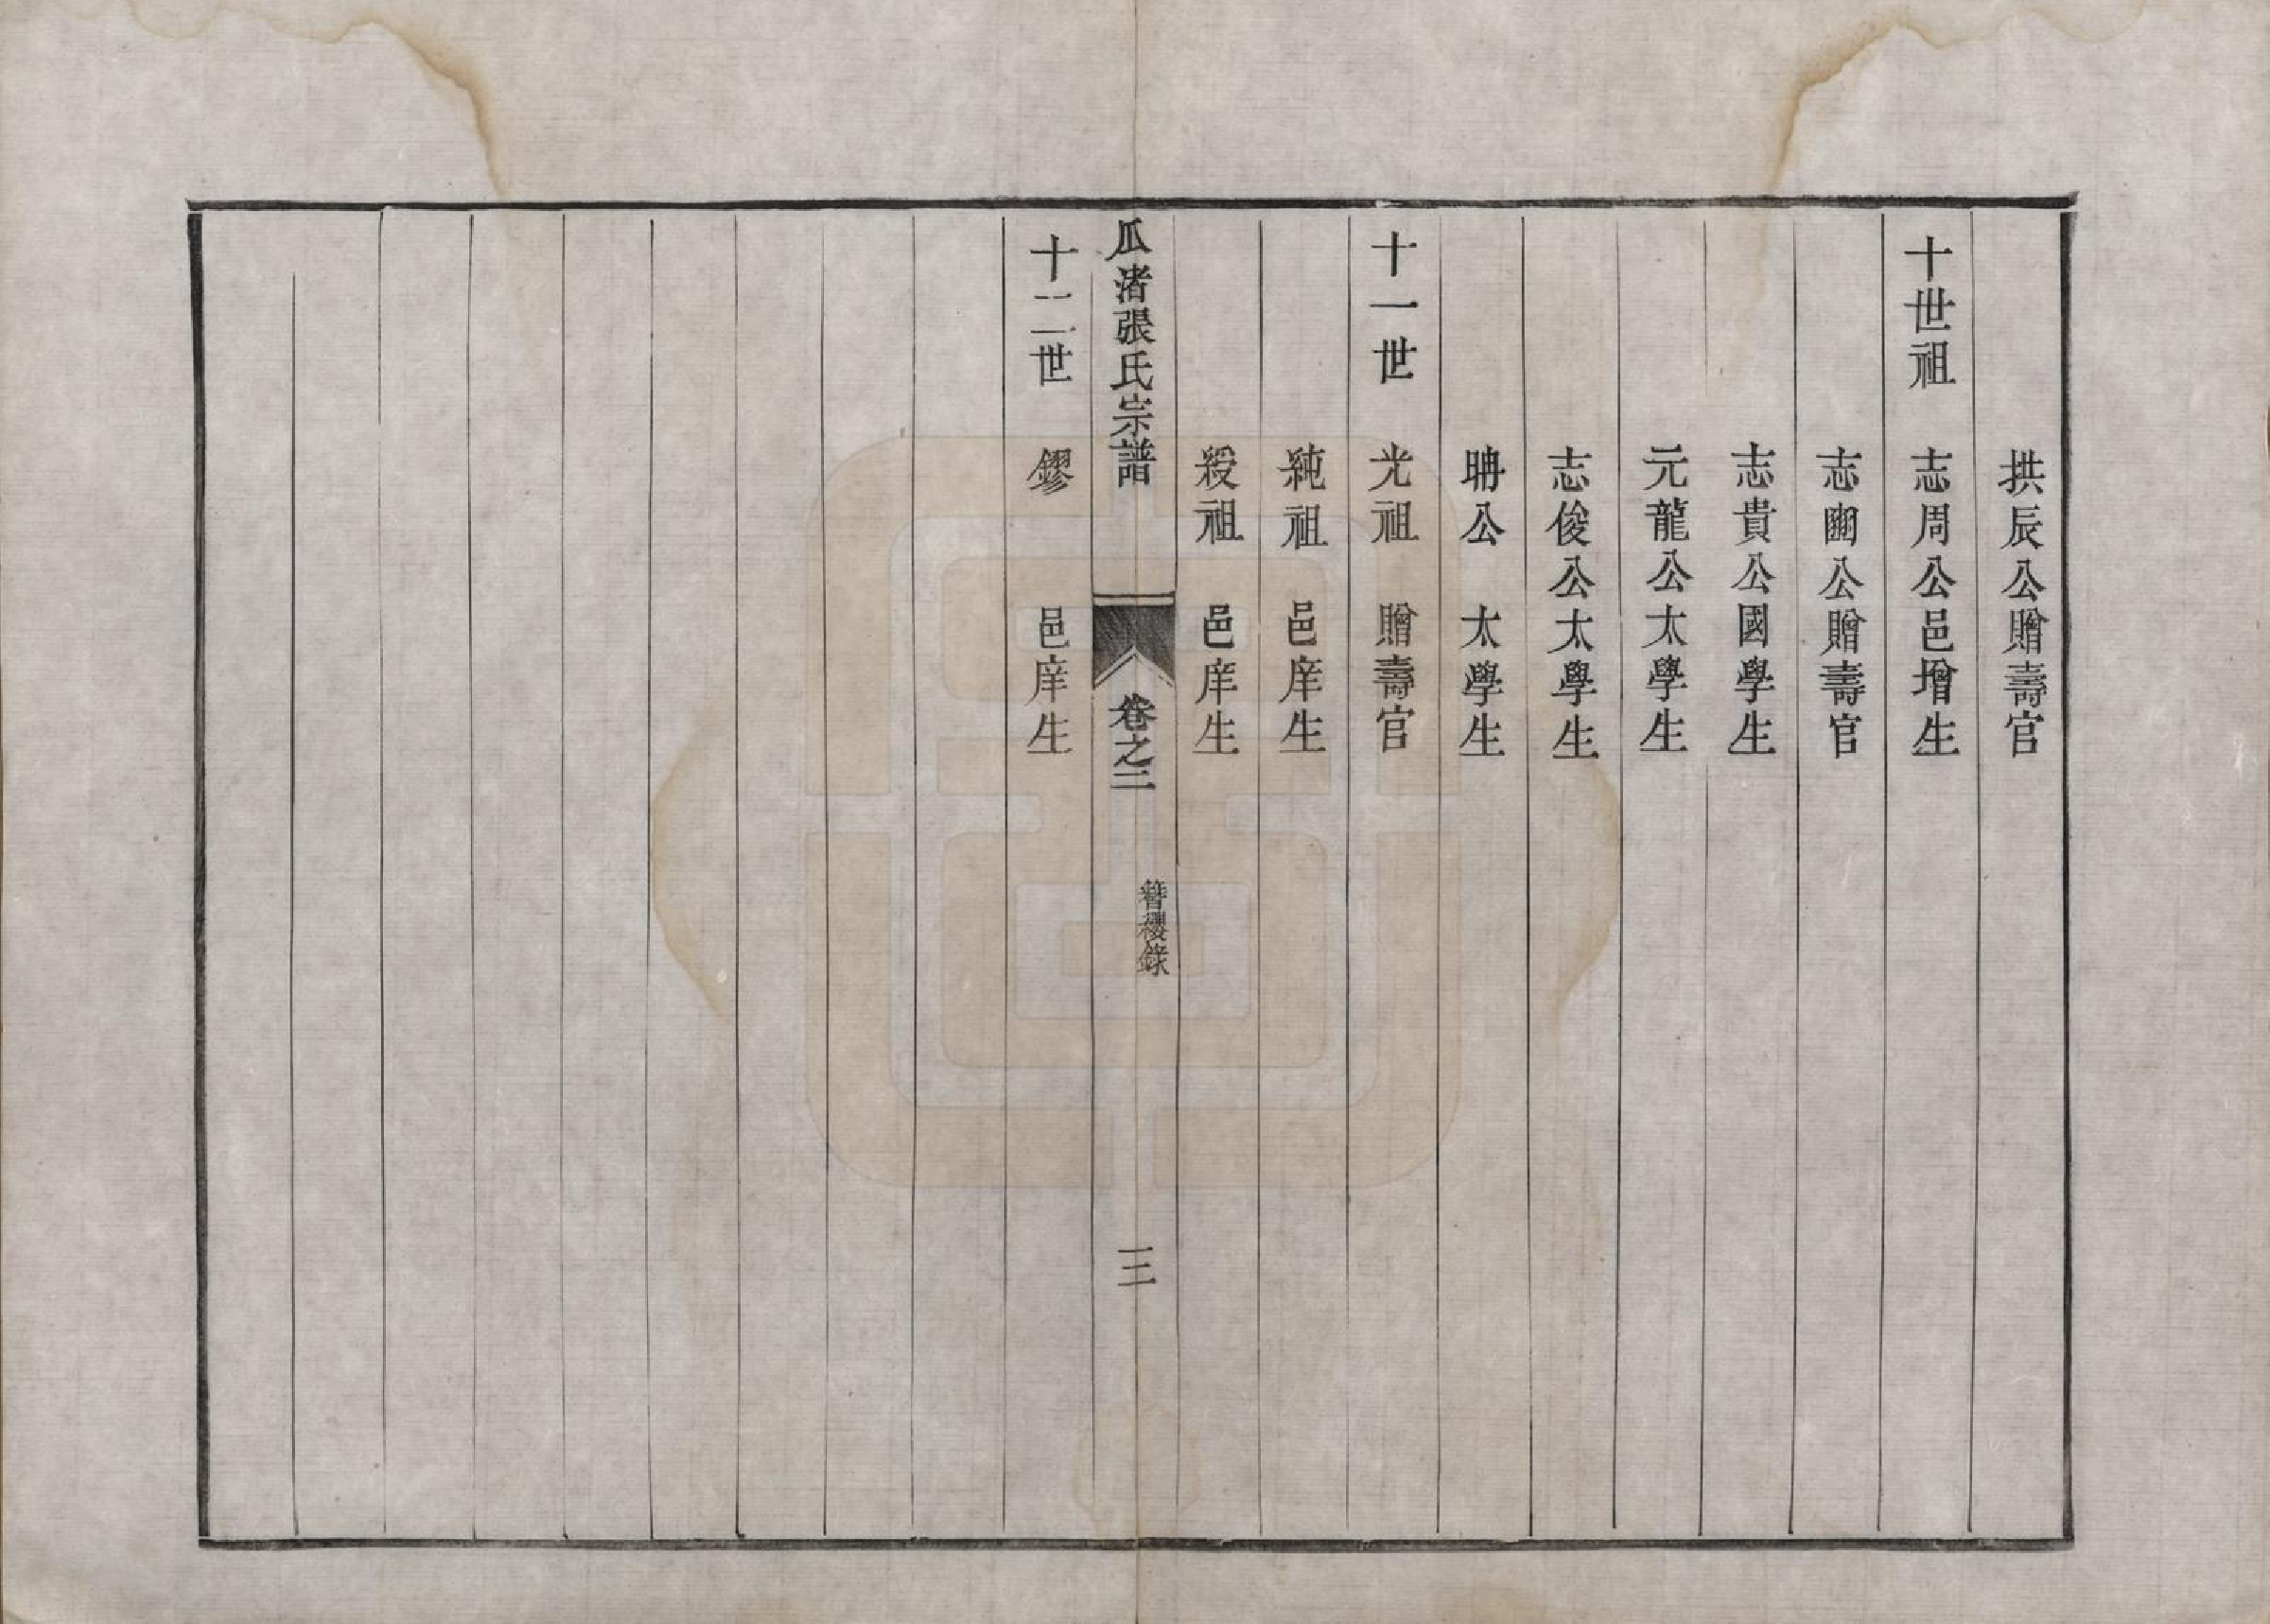 拱辰公贈壽官
十世祖 志周公邑增生
志豳公贈壽官
志貴公國學生
元龍公太學生
志俊公太學生
聃公 太學生
十一世 光祖 贈壽官
純祖 邑庠生
綬祖 邑庠生
瓜渚張氏宗譜 卷之二 簪纓錄 三
十二世 鏐 邑庠生